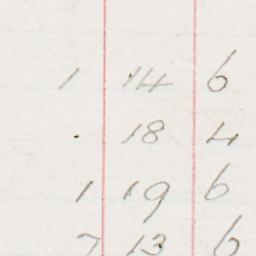 1 14 6
. 18 4
1 19 6
7 13 6